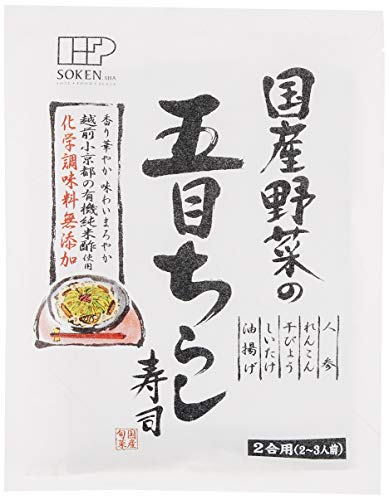 SOKEN SHA
国産野菜の
五目ちらし
寿司
香り華やか 味わいまろやか
越前小京都の有機純米酢使用
化学調味料無添加
人参
れんこん
干ぴょう
しいたけ
油揚げ
国産
旬菜
2合用(2~3人前)